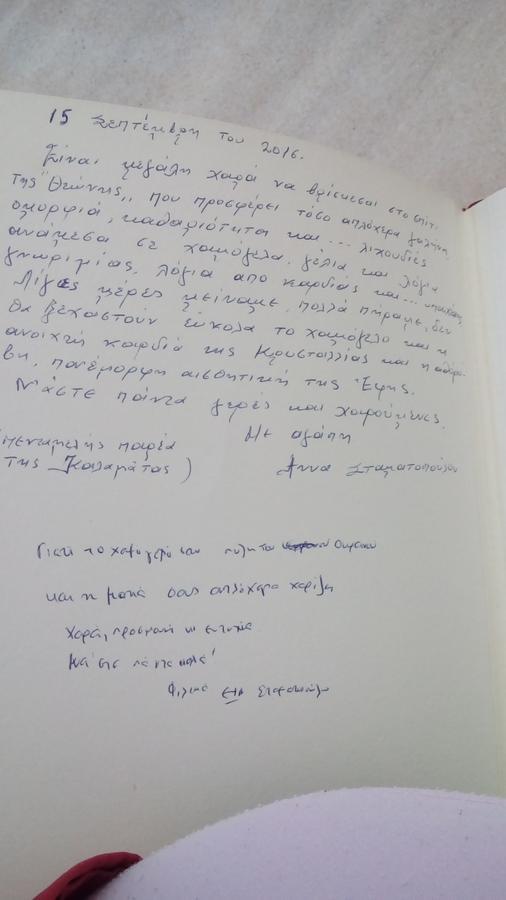 15 Σεπτέμβρη του 2016.
Είναι μεγάλη χαρά να βρίσκεσαι στο σπίτι
της "Θεώνης,, που προσφέρει τόσο απλόχερα γαλήνη,
ομορφιά, καθαριότητα και.... λιχουδιές
ανάμεσα σε χαμόγελα, γέλια και λόγια
γνωριμίας, λόγια από καρδιάς και...
Λίγες μέρες μείναμε, πολλά πήραμε, δεν
θα ξεχαστούν εύκολα το χαμόγελο και η
ανοιχτή καρδιά της Κρυσταλλίας και η αθόρυ-
βη, πανέμορφη αισθητική της Έφης.
Νάστε πάντα γερές και χαρούμενες.
Με αγάπη
(πενταμελής παρέα
της Καλαμάτας)
Άννα Σταματοπούλου
Γιατί το χαμόγελό σας
και η ματιά σας απλόχερα χαρίζει
Χαρά, προσμονή κι ευτυχία
Νά στε πάντα καλά!
Φιλικά